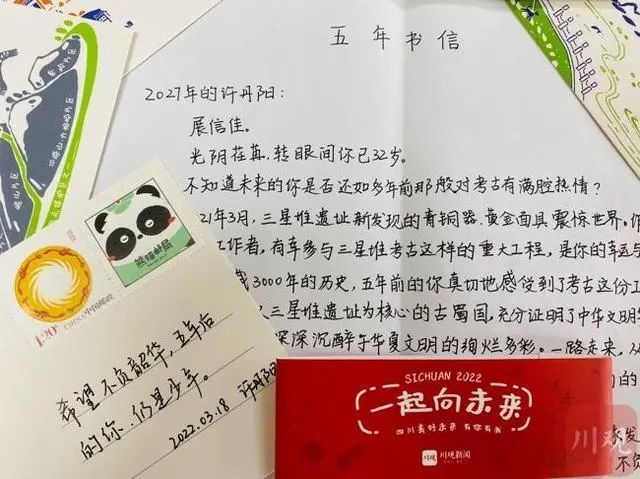 五年书信
2027年的许丹阳:
展信佳。
光阴荏苒,转眼间你已32岁。
不知道未来的你是否还如多年前那般对考古有满腔热情?
21年3月,三星堆遗址新发现的青铜器、黄金面具震惊世界。作
工作者,有幸参与三星堆考古这样的重大工程,是你的幸运与
3000年的历史,五年前的你真切地感受到了考古这份工
三星堆遗址为核心的古蜀国,充分证明了中华文明
深深沉醉于华夏文明的绚烂多彩。一路走来,从
的
发
不负
熊猫邮局
1.20元
CHINA 中国邮政
希望不负韶华,五年后
的你,仍是少年。
许丹阳
2022.03.18
SICHUAN 2022
一起向未来
四川有好未来 有你有我
川观
川观新闻
川观